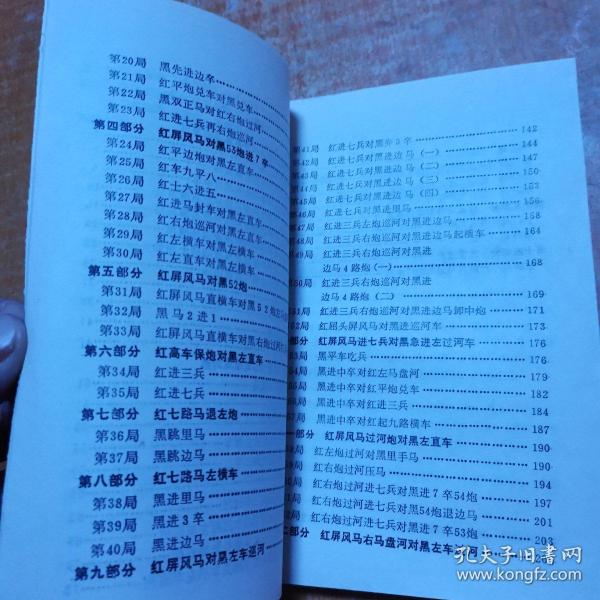 第20局 黑先进边卒
第21局 红平炮兑车对黑兑车
第22局 黑双正马对红右炮过河
第23局 红进七兵再右炮巡河
第四部分 红屏风马对黑53炮进7卒
第24局 红平边炮对黑左直车
第25局 红车九平八
第26局 红士六进五
第27局 红进马封车对黑左直车
第28局 红右炮巡河对黑左直车
第29局 红左横车对黑左横车
第30局 红左直车对黑左横车
第五部分 红屏风马对黑52炮
第31局 红屏风马直横车对黑52炮
第32局 黑马2进1
第33局 红屏风马直横车对黑右炮过河
第六部分 红高车保炮对黑左直车
第34局 红进三兵
第35局 红进七兵
第七部分 红七路马退左炮
第36局 黑跳里马
第37局 黑跳边马
第八部分 红七路马左横车
第38局 黑进里马
第39局 黑进3卒
第40局 黑进边马
第九部分 红屏风马对黑左车巡河
第41局 红进七兵对黑 3卒 142
第42局 红进七兵对黑进边马(一) 144
第43局 红进七兵对黑进边马(二) 147
第44局 红进七兵对黑进边马(三) 150
第45局 红进七兵对黑进边马(四) 152
红进七兵对黑进里马 156
47局 红进三兵右炮巡河对黑进边马 158
48局 红进三兵右炮巡河对黑进边马起横车 164
49局 红进三兵右炮巡河对黑进
边马4路炮(一) 168
50局 红进三兵右炮巡河对黑进
边马4路炮(二) 169
51局 红进三兵右炮巡河对黑进边马卸中炮 171
52局 红屈头屏风马对黑进巡河车 173
部分 红屏风马进七兵对黑急进左过河车 176
53局 黑平车吃兵 176
54局 黑进中卒对红左马盘河 179
局 黑进中卒对红平炮兑车 182
局 黑进中卒对红进三兵 184
局 黑进中卒对红起九路横车 187
部分 红屏风马过河炮对黑左直车 190
局 红左炮过河对黑里手马 190
局 红右炮过河压马 194
局 红右炮过河进七兵对黑进7卒54炮 197
局 红右炮过河进七兵对黑54炮退边马 201
局 红右炮过河进七兵对黑进7卒53炮 203
二部分 红屏风马右马盘河对黑左车过河
孔夫子旧书网
www.kongfz.com